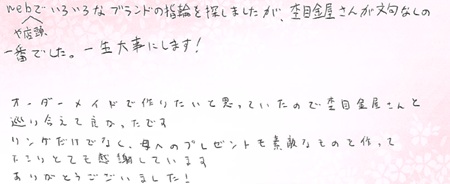 webでいろいろなブランドの指輪を探しましたが、杢目金屋さんが文句なしの
や店頭
一番でした。一生大事にします!
オーダーメイドで作りたいと思っていたので杢目金屋さんと
巡り合えて良かったです
リングだけでなく、母へのプレゼントも素敵なものを作って
とても感謝しています
ありがとうございました!